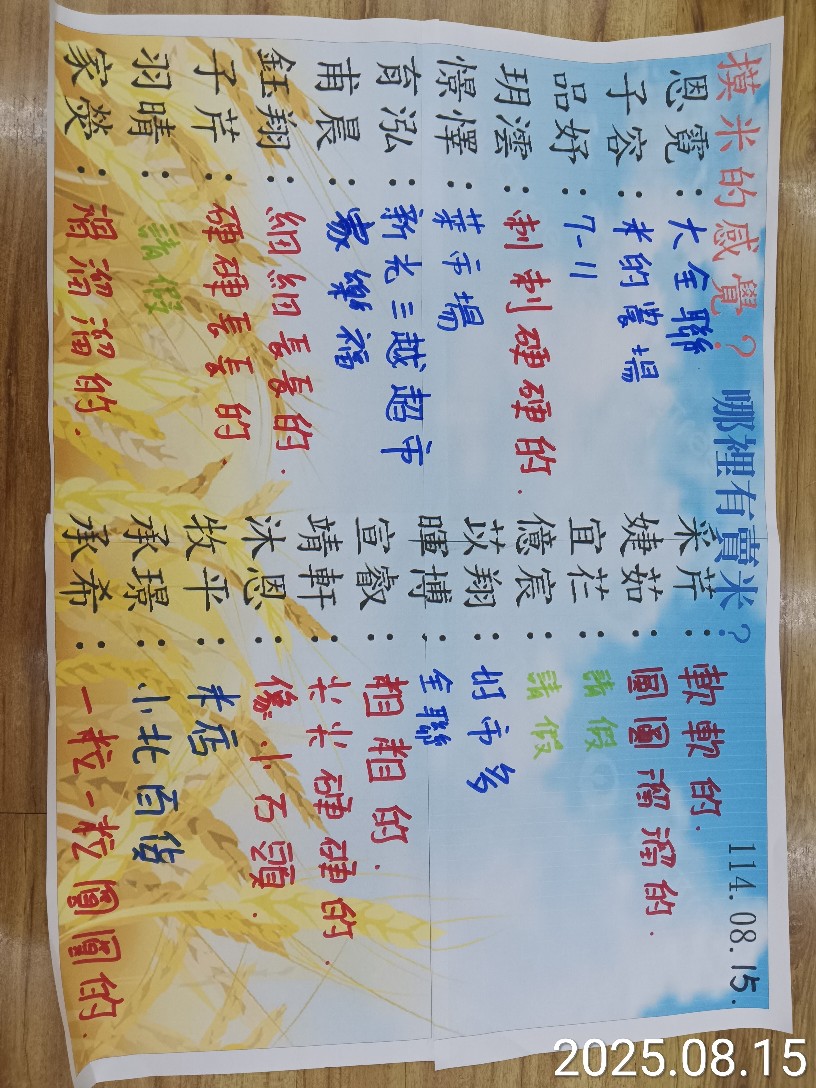 摸米的感覺？哪裡有賣米？ 114.08.15.
恩霓：大全聯
子容：米的農場
品妤：7-11
玥澐：刺刺硬硬的.
憬懌：菜市場
育泓：新光三越超市
甫晨：家樂福
鈺翔：細細長長的.
子芹：硬硬長長的.
羽晴：請假
家熒：滑溜溜的.
采芹：軟軟的.
婕茹：圓圓溜溜的.
宜芢：請假
億宸：請假
苡翔：好市多
暉博：全聯
宣叡：粗粗的.
靖軒：尖尖硬硬的.
沐恩：像小石頭.
牧平：米店
承璟：小北百貨
承希：一粒一粒圓圓的.
2025.08.15